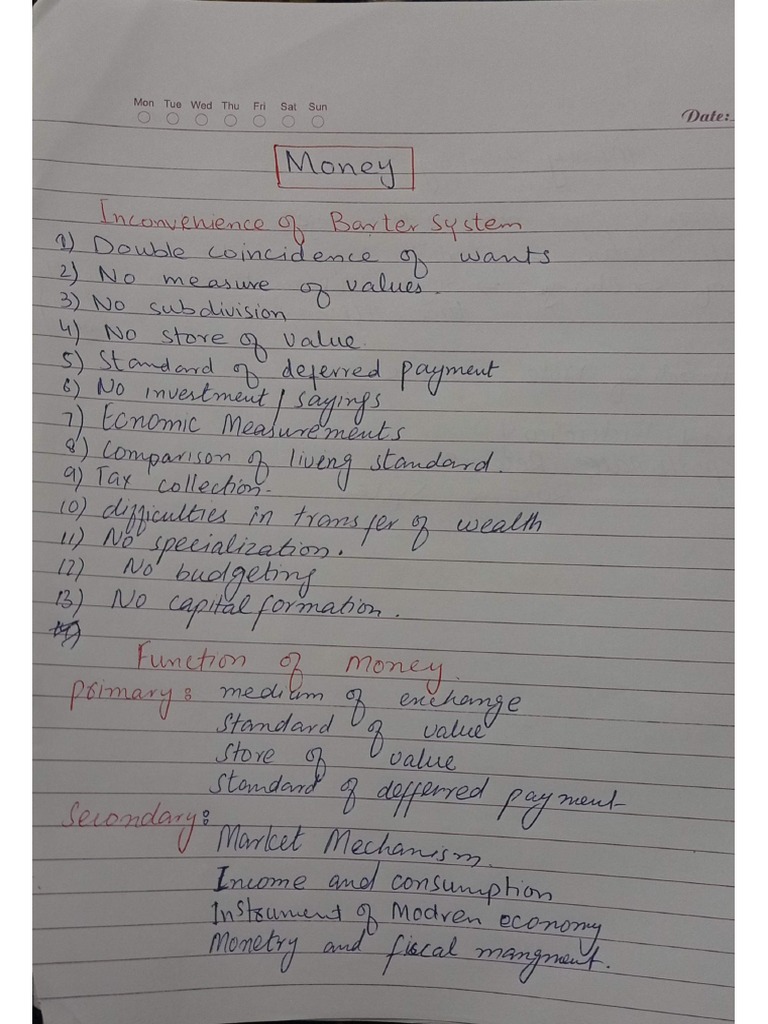 Mon Tue Wed Thu Fri Sat Sun
Date:
Money
Inconvenience of Barter System
1) Double coincidence of wants
2) No measure of values.
3) No subdivision
4) No store of value.
5) Standard of deferred payment
6) No investment / sayings
7) Ecnomic Measurements
8) Comparison of living standard.
9) Tax collection.
10) difficulties in transfer of wealth
11) No specialization.
12) No budgeting
13) No capital formation.
Function of money.
Primary: medium of exchange
Standard of value
Store of value
Standard of defferred payment
Secondary:
Market Mechanism.
Income and consumption
Instrument of Modren economy
Monetry and fiscal mangment.